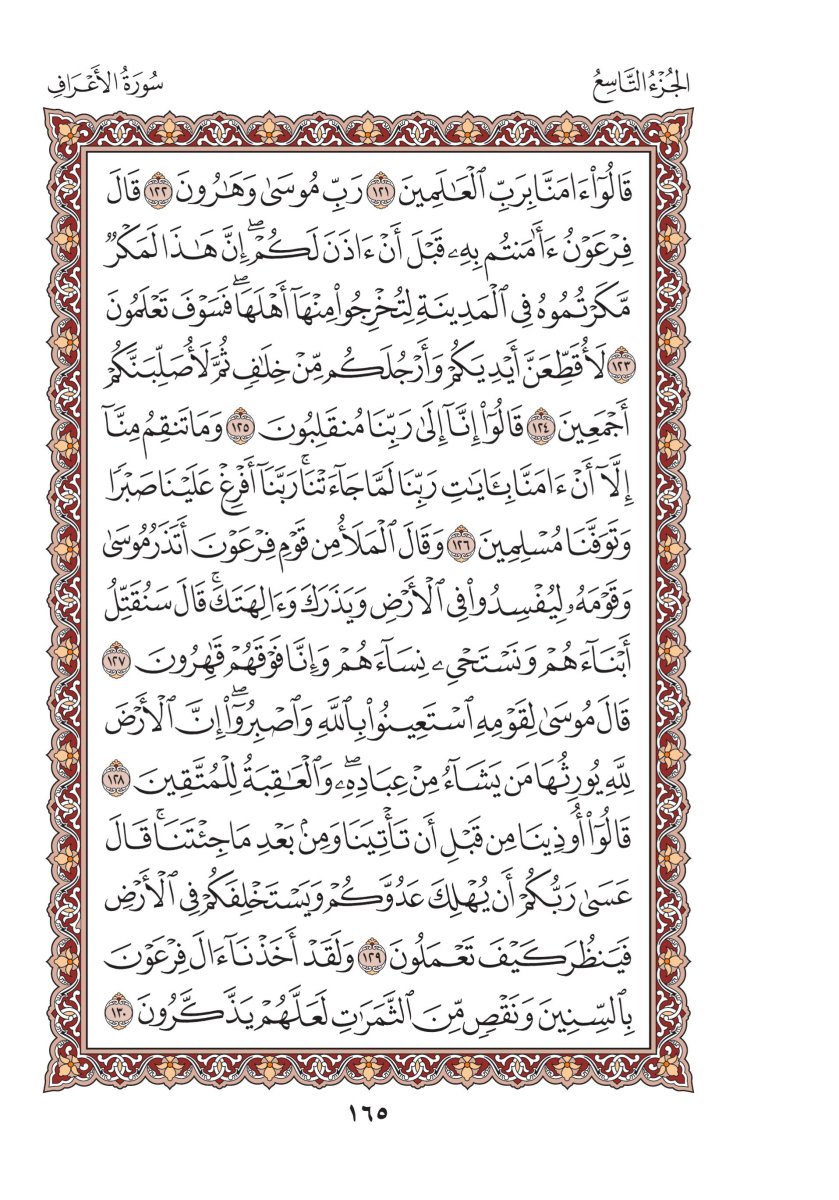 الجُزْءُ التَّاسِعُ
سُورَةُ الأَعْرَافِ
قَالُوٓاْ ءَامَنَّا بِرَبِّ ٱلْعَٰلَمِينَ ١٢١ رَبِّ مُوسَىٰ وَهَٰرُونَ ١٢٢ قَالَ
فِرْعَوْنُ ءَأَٰمَنتُم بِهِۦ قَبْلَ أَنْ ءَاذَنَ لَكُمْۖ إِنَّ هَٰذَا لَمَكْرٌ
مَّكَرْتُمُوهُ فِي ٱلْمَدِينَةِ لِتُخْرِجُواْ مِنْهَآ أَهْلَهَاۖ فَسَوْفَ تَعْلَمُونَ
١٢٣ لَأُقَطِّعَنَّ أَيْدِيَكُمْ وَأَرْجُلَكُم مِّنْ خِلَٰفٍ ثُمَّ لَأُصَلِّبَنَّكُمْ
أَجْمَعِينَ ١٢٤ قَالُوٓاْ إِنَّآ إِلَىٰ رَبِّنَا مُنقَلِبُونَ ١٢٥ وَمَا تَنقِمُ مِنَّآ
إِلَّآ أَنْ ءَامَنَّا بِـَٔايَٰتِ رَبِّنَا لَمَّا جَآءَتْنَاۚ رَبَّنَآ أَفْرِغْ عَلَيْنَا صَبْرًا
وَتَوَفَّنَا مُسْلِمِينَ ١٢٦ وَقَالَ ٱلْمَلَأُ مِن قَوْمِ فِرْعَوْنَ أَتَذَرُ مُوسَىٰ
وَقَوْمَهُۥ لِيُفْسِدُواْ فِي ٱلْأَرْضِ وَيَذَرَكَ وَءَالِهَتَكَۚ قَالَ سَنُقَتِّلُ
أَبْنَآءَهُمْ وَنَسْتَحْيِۦ نِسَآءَهُمْ وَإِنَّا فَوْقَهُمْ قَٰهِرُونَ ١٢٧
قَالَ مُوسَىٰ لِقَوْمِهِ ٱسْتَعِينُواْ بِٱللَّهِ وَٱصْبِرُوٓاْۖ إِنَّ ٱلْأَرْضَ
لِلَّهِ يُورِثُهَا مَن يَشَآءُ مِنْ عِبَادِهِۦۖ وَٱلْعَٰقِبَةُ لِلْمُتَّقِينَ ١٢٨
قَالُوٓاْ أُوذِينَا مِن قَبْلِ أَن تَأْتِيَنَا وَمِنۢ بَعْدِ مَا جِئْتَنَاۚ قَالَ
عَسَىٰ رَبُّكُمْ أَن يُهْلِكَ عَدُوَّكُمْ وَيَسْتَخْلِفَكُمْ فِي ٱلْأَرْضِ
فَيَنظُرَ كَيْفَ تَعْمَلُونَ ١٢٩ وَلَقَدْ أَخَذْنَآ ءَالَ فِرْعَوْنَ
بِٱلسِّنِينَ وَنَقْصٍ مِّنَ ٱلثَّمَرَٰتِ لَعَلَّهُمْ يَذَّكَّرُونَ ١٣٠
١٦٥